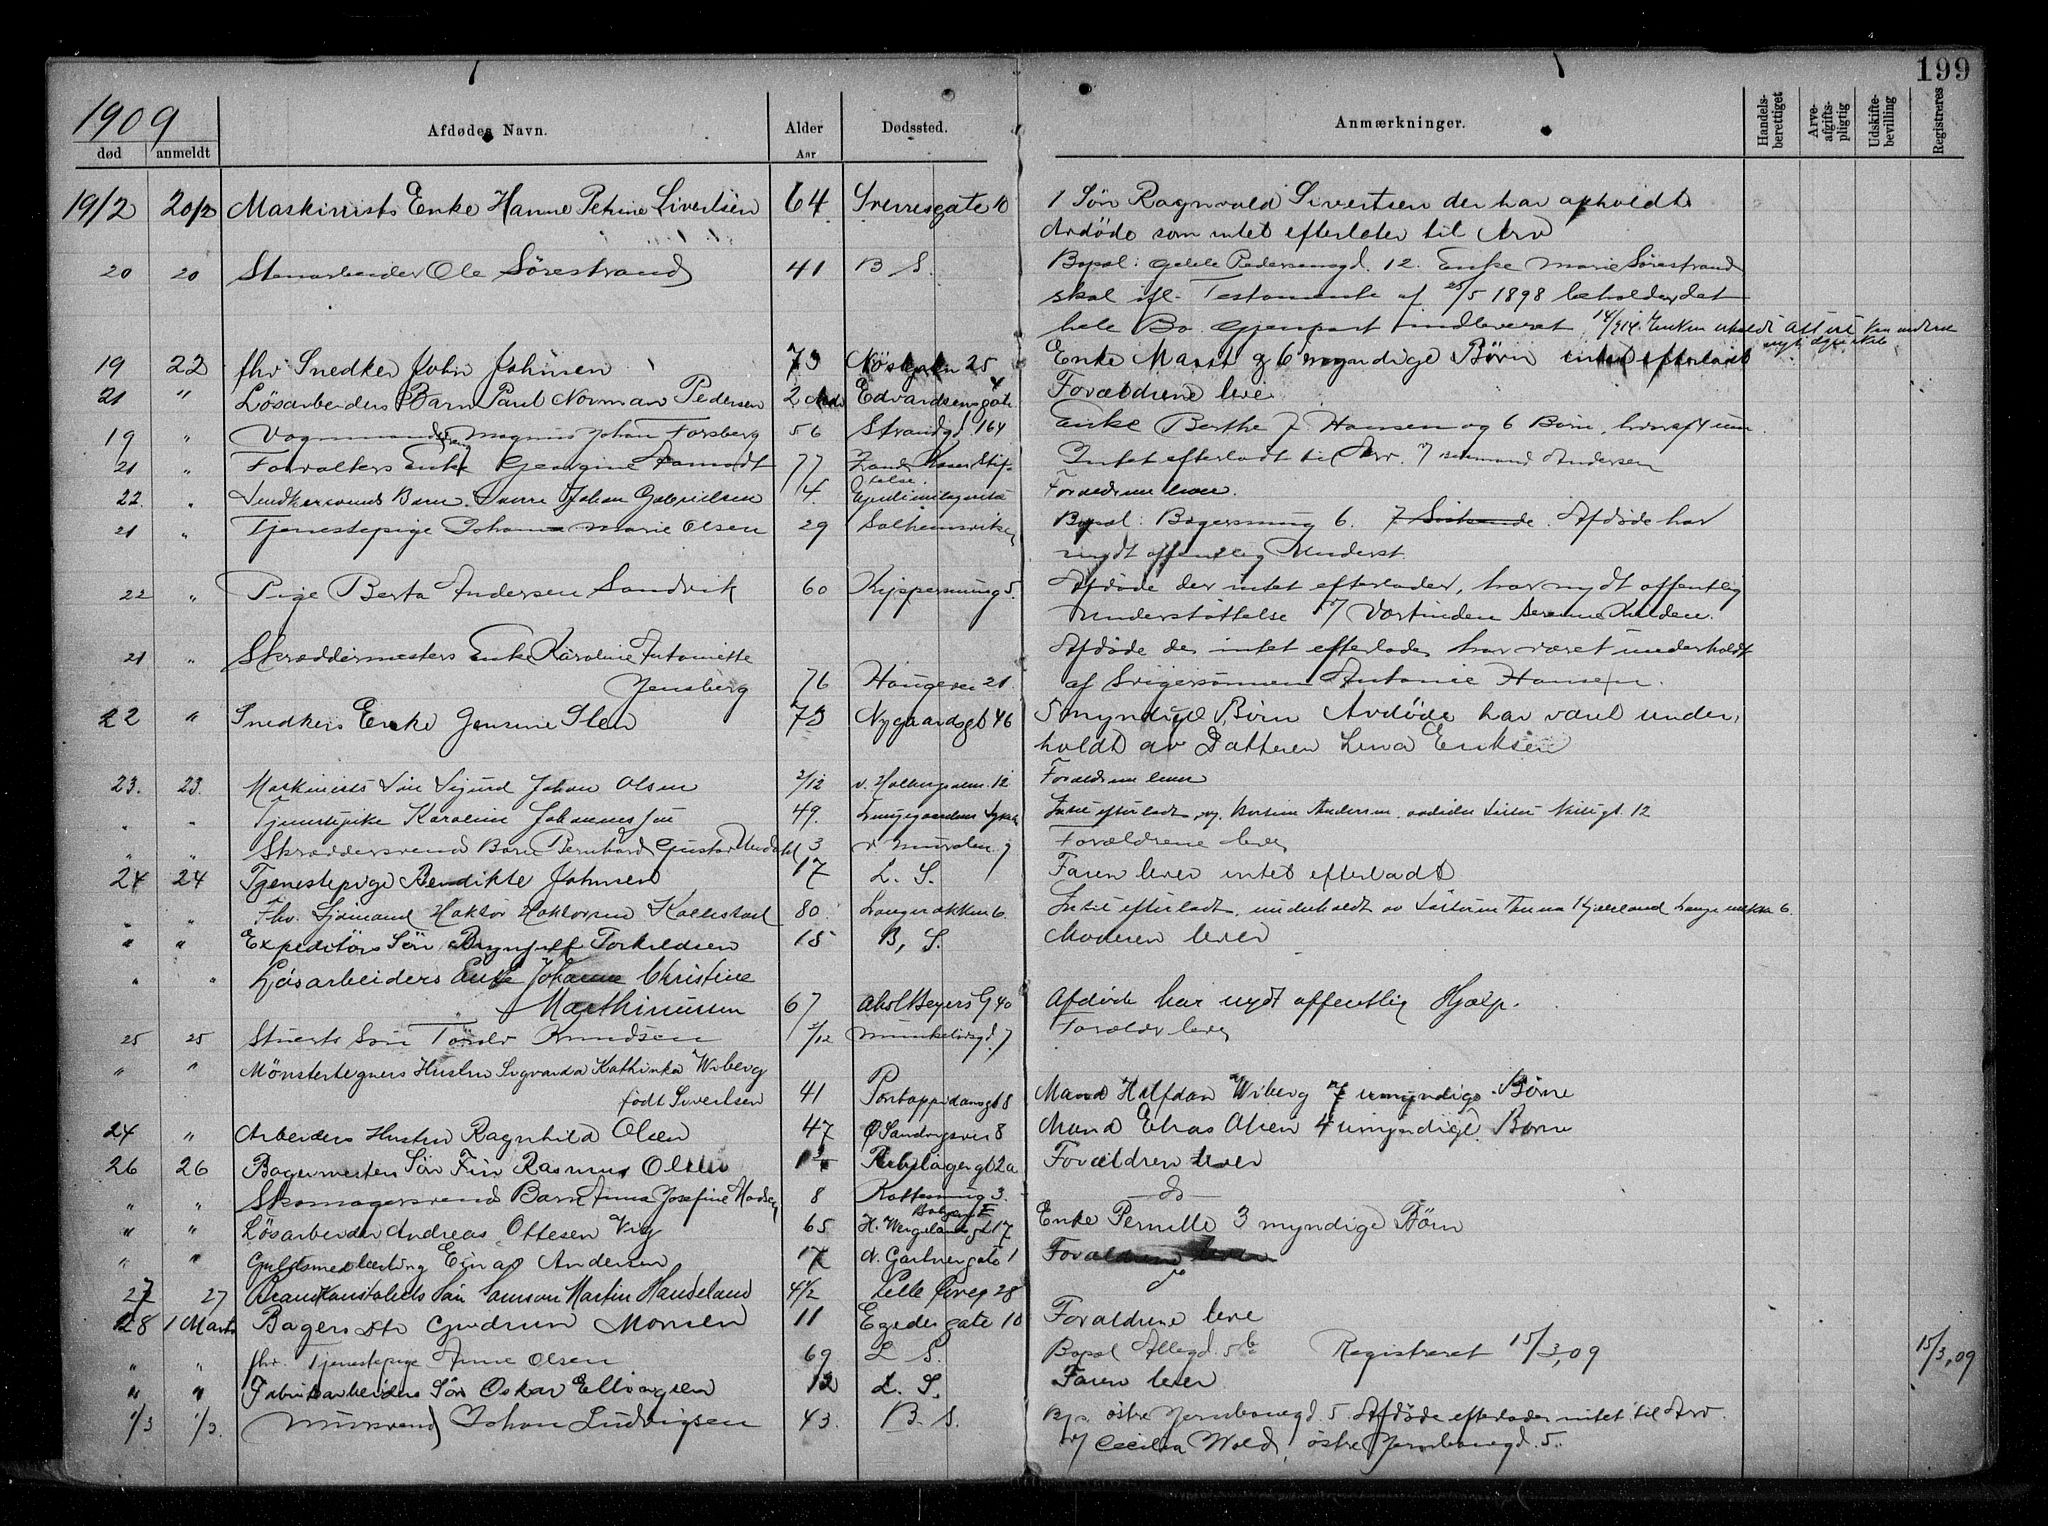 199
1909
død anmeldt Afdødes Navn. Alder Aar Dødssted. Anmærkninger. Handels-berettiget Arve-afgifts-pligtig Udskifte-bevilling Registreres
19/2 20/2 Maskinists Enke Hanne Petrine Sivertsen 64 Sverresgate 10 1 Søn Ragnvald Sivertsen der har opholdt
Avdøde som intet efterlater til Arv
20 20 Stenarbeider Ole Sørestrand 41 B S. Bopæl: Pedersensgd. 12. Enke Marie Sørestrand
skal ifl. Testamente af 25/5 1898 beholde det
hele Bo. Gjenpart indleveret. 14/914. Enken erholdt Att
19 22 fhv Snedker John Johnsen 73 Nøstegaten 25 Enke Marit & 6 myndige Børn intet efterladt
21 " Løsarbeiders Barn Paul Norman Pedersen 2 Edvardsensgate 4 Forældrene leve
19 " Vognmand Magnus Johan Forsberg 56 Strandgd 164 Enke Berthe f Hansen og 6 Børn, hvoraf 4 um
21 " Forvalters Enke Georgine Aamodt 77 Stif-telse. Intet efterladt til Arv. Andersen
22. " Snedkersvends Barn Johan Gabrielsen 4 Forældrene lever.
21 " Tjenestepige Johanna Marie Olsen 29 Solheimsviken Bopæl: Bagersmug 6. 7 Søskende. Afdøde har
nydt offentlig Underst.
22 " Pige Berta Andersen Sandvik 60 Kippersmug 5. Afdøde der intet efterlader, har nydt offentlig
Understøttelse v/ Værtinden Serine
21 " Skræddermesters Enke Karoline Antoinette Afdøde der intet efterlader har været underholdt
Jensberg 76 Haugevei 21. af Svigersønnen Antonie Hansen.
22 " Snedkers Enke Jensine Sten 73 Nygaardsgt 46 5 myndige Børn Avdøde har været under,
holdt av Datteren Lina Eriksen
23. 23. Maskinists Søn Sigurd Johan Olsen 2/12 v. Holbergsalm. 12 Forældrene lever
" " Tjenestepike Karoline Johannessen 49. Lungegaardens Sykeh Intet efterladt, Andersen, 12
" " Skræddersvends Barn Bernhard Gustav 3 v. Muralm. 7 Forældrene lever
24 24 Tjenestepige Bendikte Johnsen 17 L. S. Faren lever intet efterladt
" " Fhv. Sjømand Haktor Haktorsen Kollestad 80. Langerækken 6. Intet efterladt, underholdt av Datteren Anna Kjæreland Langerækken 6.
" " Expeditørs Søn Brynjulf Torkildsen 15 B, S. Moderen lever
" " Løsarbeiders Enke Johanne Christine
Marthinussen 67 Abs. Beyers G 40 Afdøde har nydt offentlig Hjælp.
25 25 Stuerts Søn Torolv Knudsen 5/12 Munkelivsgd. 7 Forældr lever
" " Mønstertegners Hustru Sigvarda Kathinka Wiberg
født Sivertsen 41 Pontoppidansgt 8 Mand Halfdan Wiberg 7 umyndige Børn
24 " Arbeiders Hustru Ragnhild Olsen 47 Ø Sandvigsvei 8 Mand Elias Olsen 4 umyndige Børn
26 26 Bagermesters Søn Fin Rasmus Olsen Forældren lever
" " Skomagersvends Barn Anna Josefine Madsen 8 Kattesmug 3. do
" " Løsarbeider Andreas Ottesen Vig 65 H. Wergelandsgt 17 Enke Pernille 3 myndige Børn
" " Guldsmedlærling Einar Andersen 17 N. Gartnergate 1 Forældrene lever
27 27 Brandkonstabels Søn Samson Martin Handeland 4 1/2 Lille Øvreg 28 do
28 1 Marts Bagers Dtr Gudrun Monsen 11 Egedesgate 10 Forældrene leve
" " fhv. Tjenestepige Anne Olsen 69 L S. Bopæl Allegd. 5b Registreret 15/3,09 15/3,09
" " Fabrikarbeiders Søn Oskar Ellingsen 12 L. S. Faren lever
1/3 1/3. Murersvend Johan Ludvigsen 43. B. S. Bp. østre Jernbanegd 5. Afdøde efterlader intet til Arv.
v/ Cecilia Wold, østre Jernbanegd. 5.